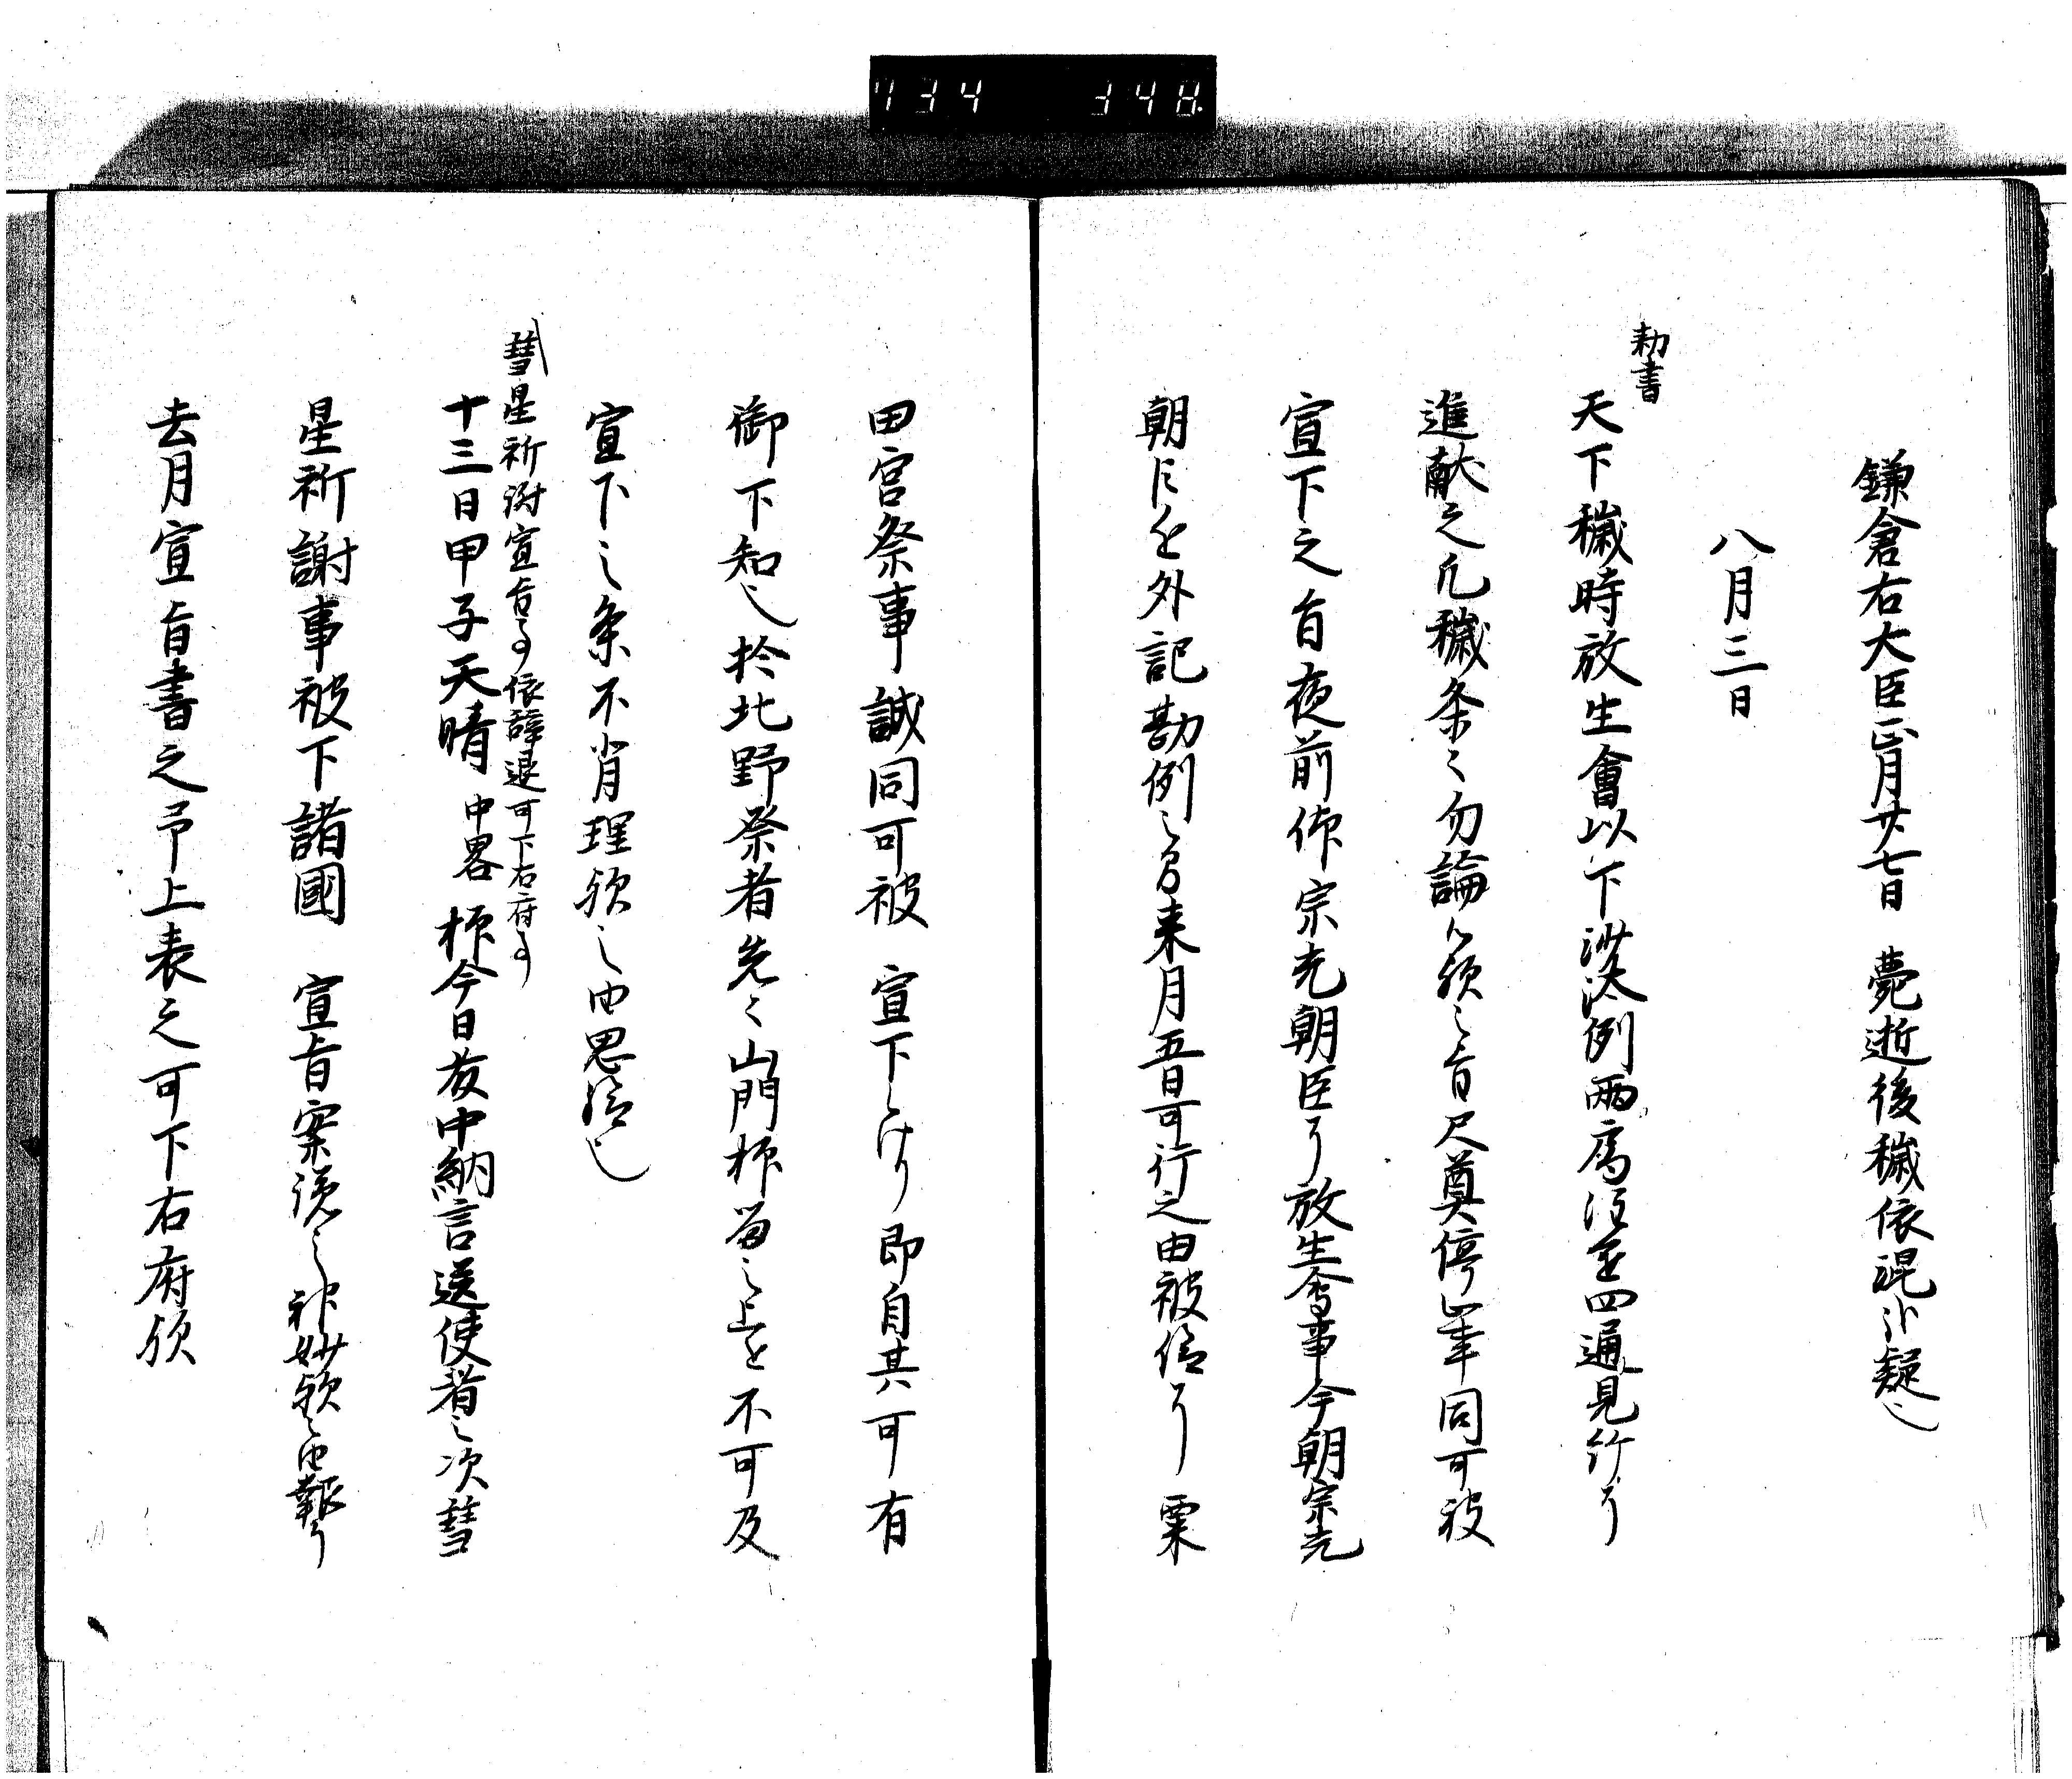 鎌倉右大臣正月廿七日 薨逝後穢依混合疑也
八月三日
勅書
天下穢時放生會以下沙汰例両局注進四通見給了
進献之凡穢条々勿論候歟之旨尺奠停止事同可被
宣下之旨夜前仰宗光朝臣了放生會事今朝宗光
朝臣を外記勘例之尋来月五日可行之由被仰了 粟
田宮祭事誠同可被 宣下候了即自其可有
御下知也於北野祭者先々山門抑留之上を不可及
宣下之条不背理歟之由思給也
彗星祈謝宣旨事依辞退可下右府事
十三日甲子天晴 中畧 抑今日友中納言送使者之次彗
星祈謝事被下諸國 宣旨案講之神妙歟之由報了
去月宣旨書之予上表之可下右府歟
734 348